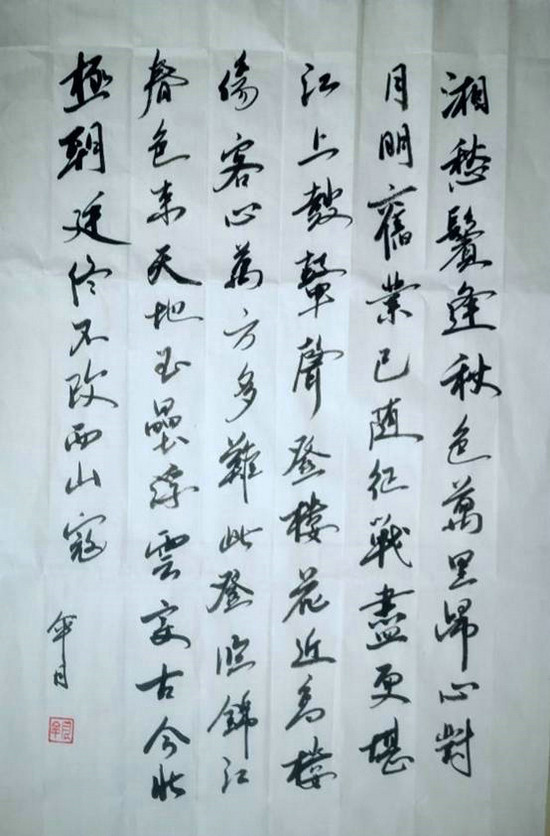 湘愁鬢逢秋色萬里歸心對
月明舊業已随征戰盡更堪
江上鼓鼙聲登樓花近高樓
傷客心萬方多難此登臨錦江
春色来天地玉壘浮雲变古今北
極朝廷终不改西山寇
月